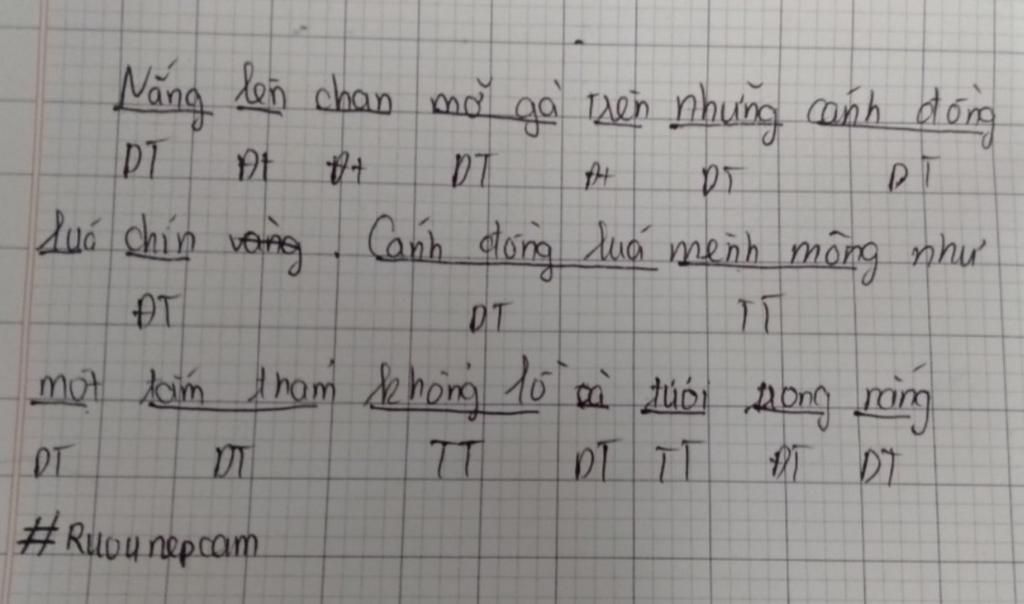 Nắng lên chan mỡ gà trên những cánh đồng
DT ĐT ĐT DT ĐT DT DT
lúa chín vàng. Cánh đồng lúa mênh mông như
ĐT DT TT
một tấm thảm khổng lồ tưới trong nắng
DT DT TT DT TT ĐT DT
#Ruounepcam